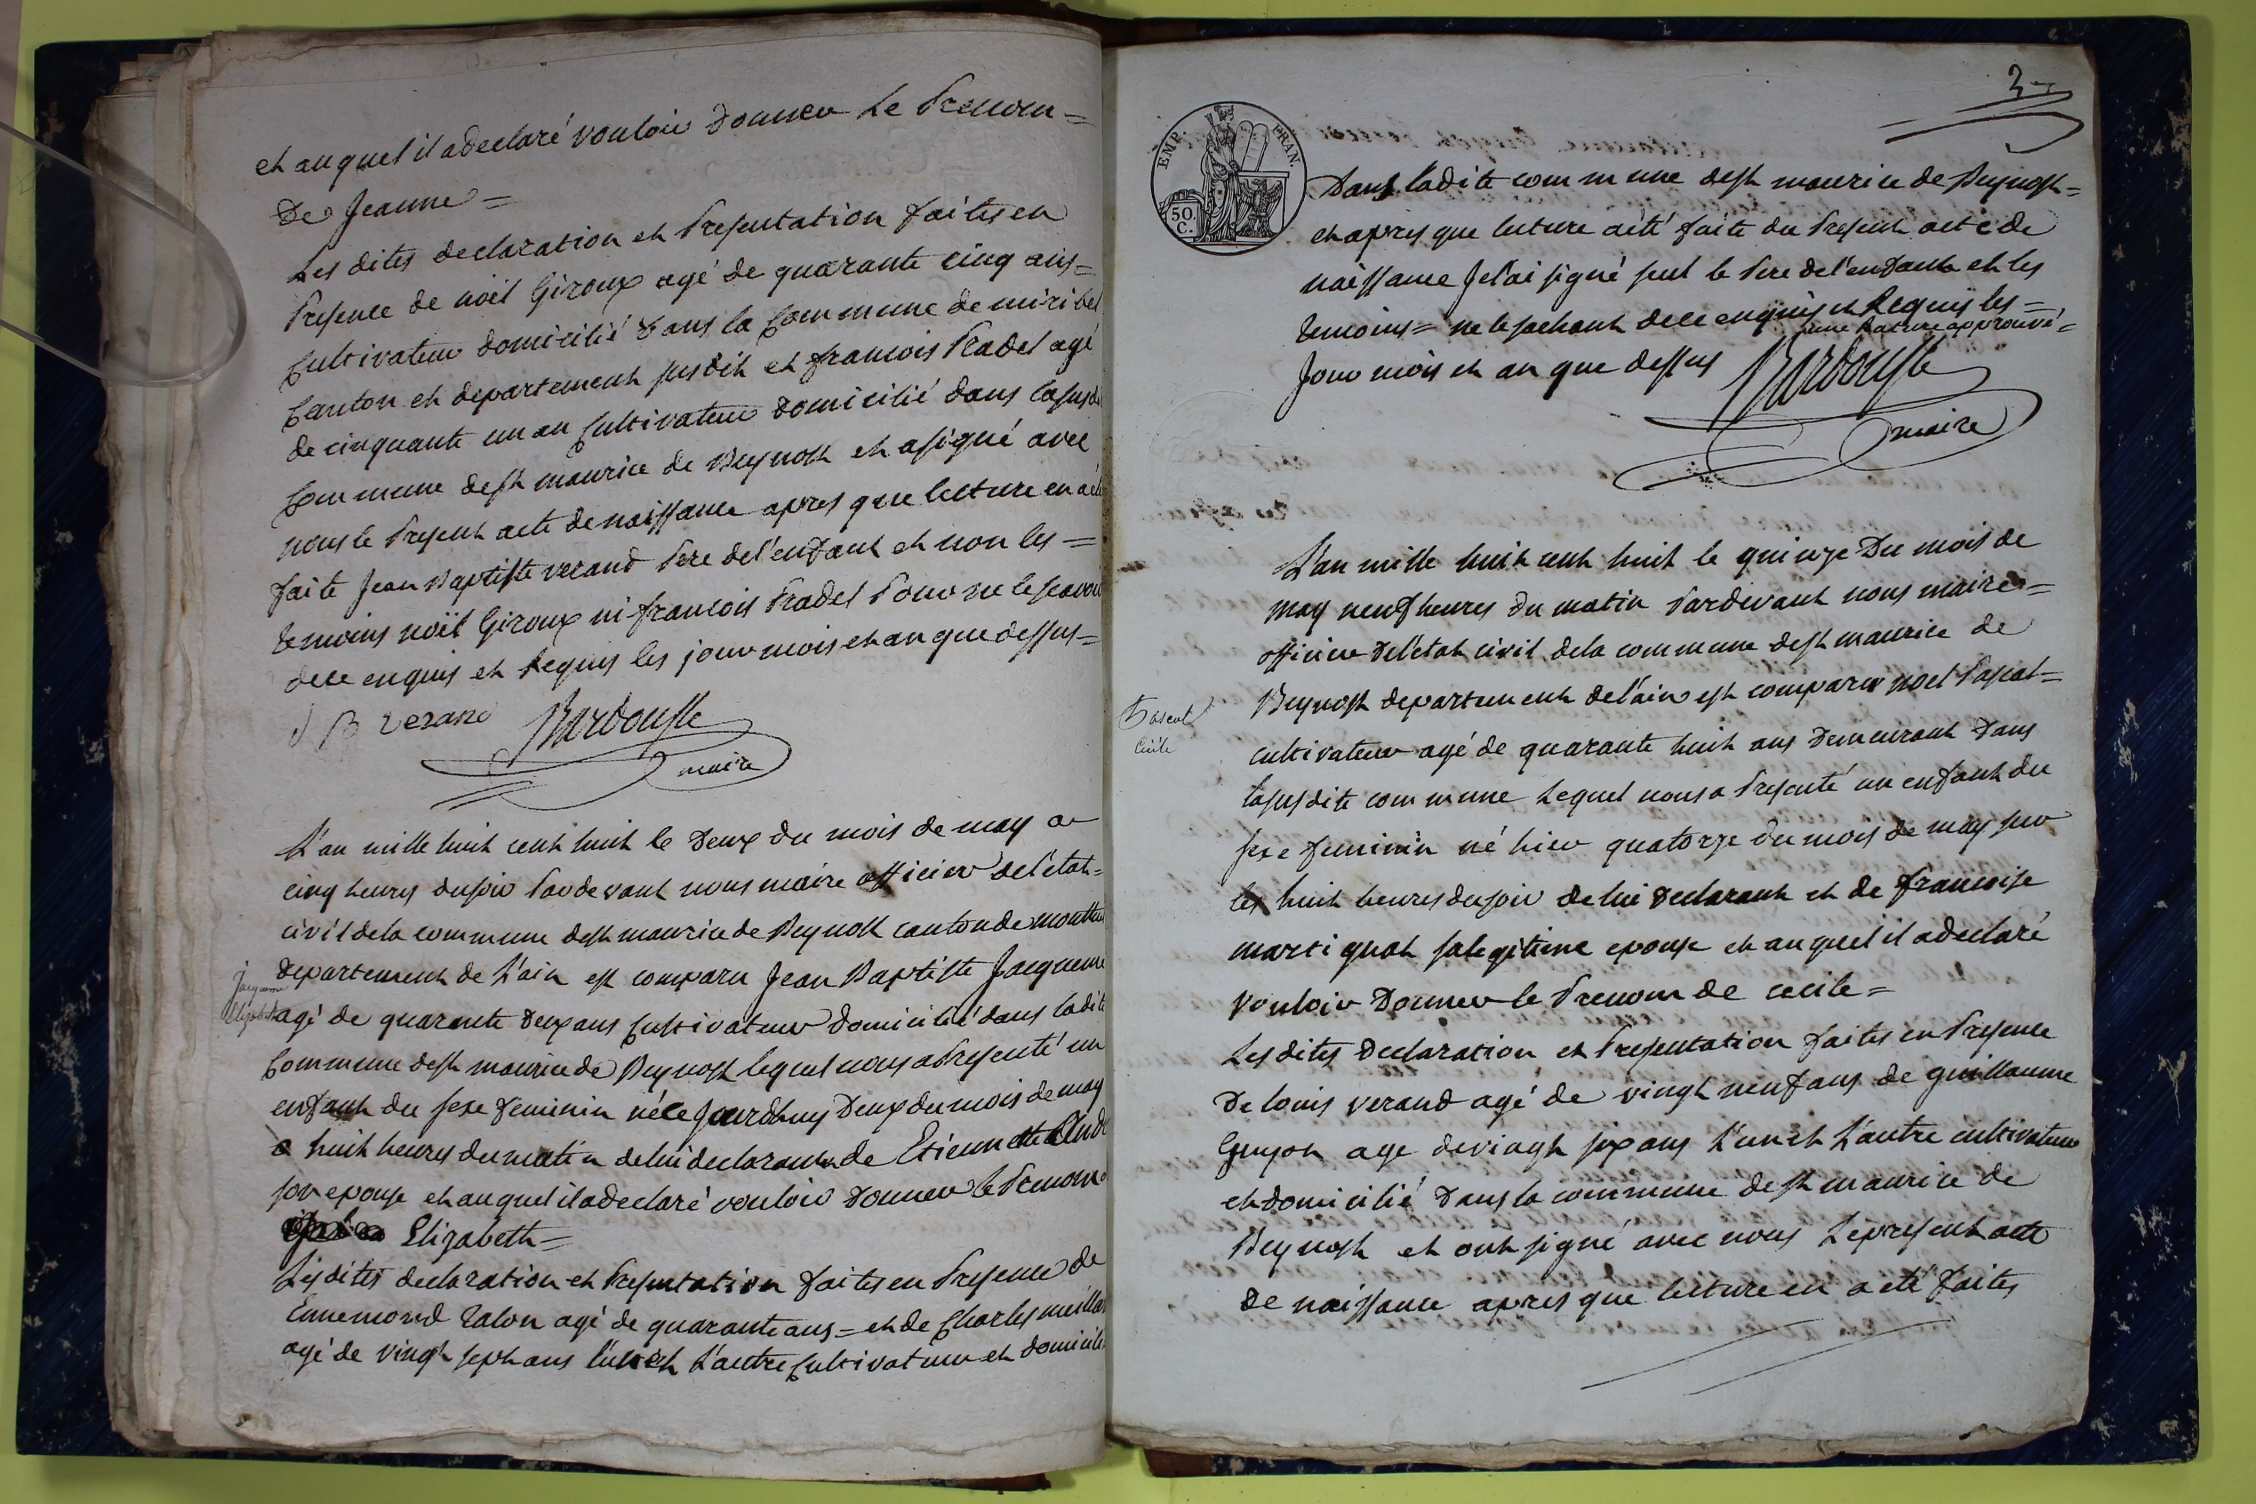 et auquel il a declaré vouloir donner le prenom =
De Jeanne =
Les dites declaration et presentation faites en
presence de noël Giroux agé de quarante cinq ans =
Cultivateur domicilié dans la Commune de miribel
Canton et departement susdit et francois Pradel agé
de cinquante un an Cultivateur domicilié dans la susd
Commune de st maurice de Beynost et a signé avec
nous le present acte de naissance apres que lecture en a été
faite Jean Baptiste verand pere de l'enfant et non les =
temoins noël Giroux ni francois Pradel pour ne le scavoir
de ce enquis et requis les jour mois et an que dessus =
J B verand Barbousse
maire
L'an mille huit cent huit le deux du mois de may a
cinq heures du soir pardevant nous maire officier de l'état =
civil de la commune de st maurice de Beynost canton de montluel
Jaqueme
Elizabeth
departement de L'ain est comparu Jean Baptiste Jacqueme
agé de quarante deux ans Cultivateur domicilié dans ladite
Commune de st maurice de Beynost lequel nous a presenté un
enfant du sexe feminin né ce jourdhuy deux du mois de may
a huit heures du matin de lui declarant et de Etiennette
son epouse et auquel il a declaré vouloir donner le prenom
Elizabeth =
Les dites declaration et presentation faites en presence de
Ennemond Talon agé de quarante ans = et de Charles
agé de vingt sept ans l'un et L'autre Cultivateur et domicilié
3
EMP. FRAN.
50.
C.
Dans ladite commune de st maurice de Beynost =
et apres que lecture a été faite du present acte de
naissance je l'ai signé seul le pere de l'enfant et les
temoins = ne le sachant de ce enquis et requis les =
une rature approuvé =
Jour mois et an que dessus Barbousse
maire
L'an mille huit cent huit le quinze du mois de
may neuf heures du matin pardevant nous maire =
officier de l'état civil de la commune de st maurice de
Pascal
Cécile
Beynost departement de l'ain est comparu noel Pascal =
cultivateur agé de quarante huit ans demeurant dans
la susdite commune Lequel nous a presenté un enfant du
sexe feminin né hier quatorze du mois de may sur
les huit heures du soir de lui declarant et de francoise
martignat sa legitime epouse et auquel il a declaré
vouloir donner le prenom de cecile =
Les dites declaration et presentation faites en presence
de louis verand agé de vingt neuf ans de guillaume
Guyot age de vingt six ans L'un et L'autre cultivateur
et domicilié dans la commune de st maurice de
Beynost et ont signé avec nous Le present acte
de naissance apres que lecture en a été faites